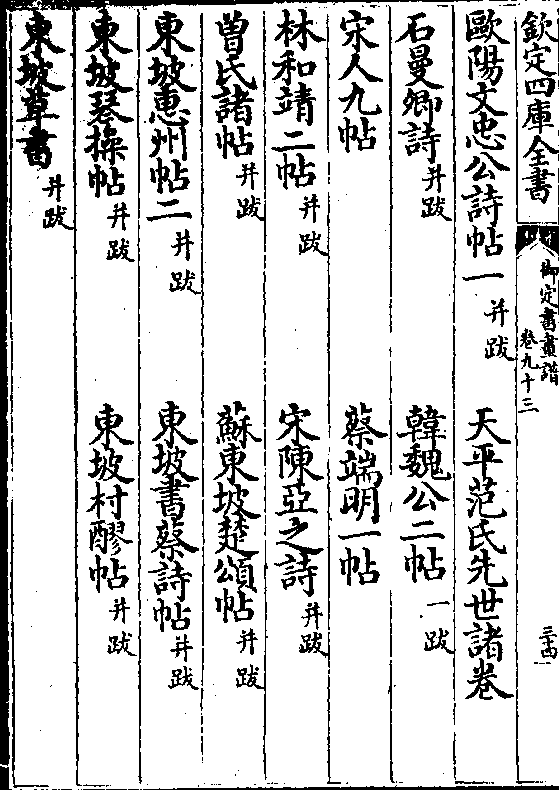 欽定四庫全書
御定書畫譜
卷九十三
三十四
歐陽文忠公詩帖一并跋
天平范氏先世諸卷
石曼卿詩并跋
韓魏公二帖一跋
宋人九帖
蔡端明一帖
林和靖二帖并跋
宋陳亞之詩并跋
曽氏諸帖并跋
蘇東坡楚頌帖并跋
東坡惠州帖二并跋
東坡書蔡詩帖并跋
東坡琴操帖并跋
東坡村醪帖并跋
東坡草書并跋